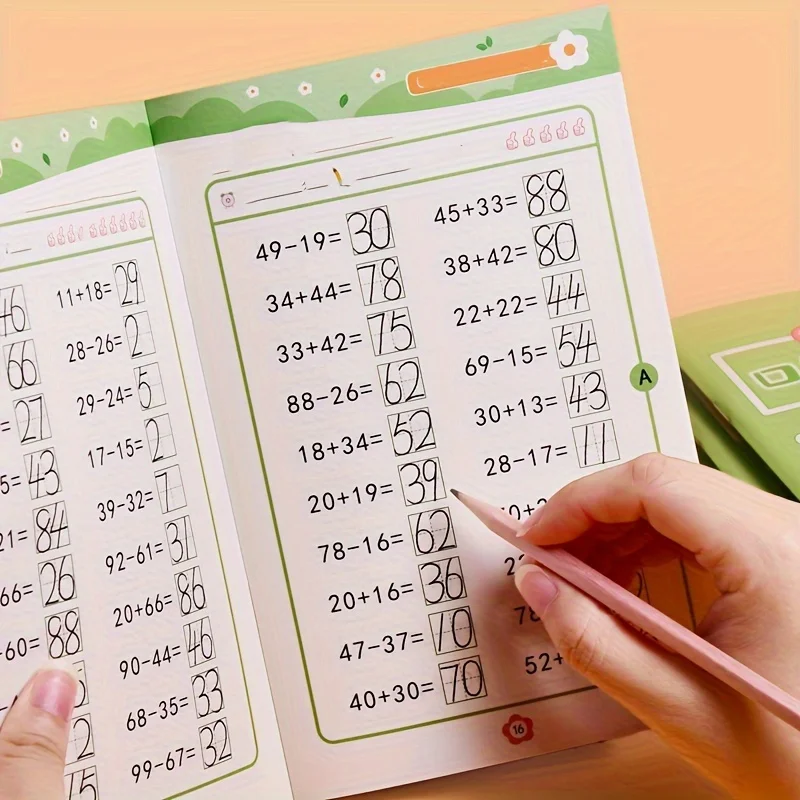 46 11+18=29
66 28-26=2
=27 29-24=5
5=43 17-15=2
21=84 39-32=7
66=26 92-61=31
-60=88 20+66=86
90-44=46
2 68-35=33
15 99-67=32
49-19=30 45+33=88
34+44=78 38+42=80
33+42=75 22+22=44
88-26=62 69-15=54
18+34=52 30+13=43
20+19=39 28-17=11
78-16=62
20+16=36
47-37=10 78
40+30=70 52+
A
16